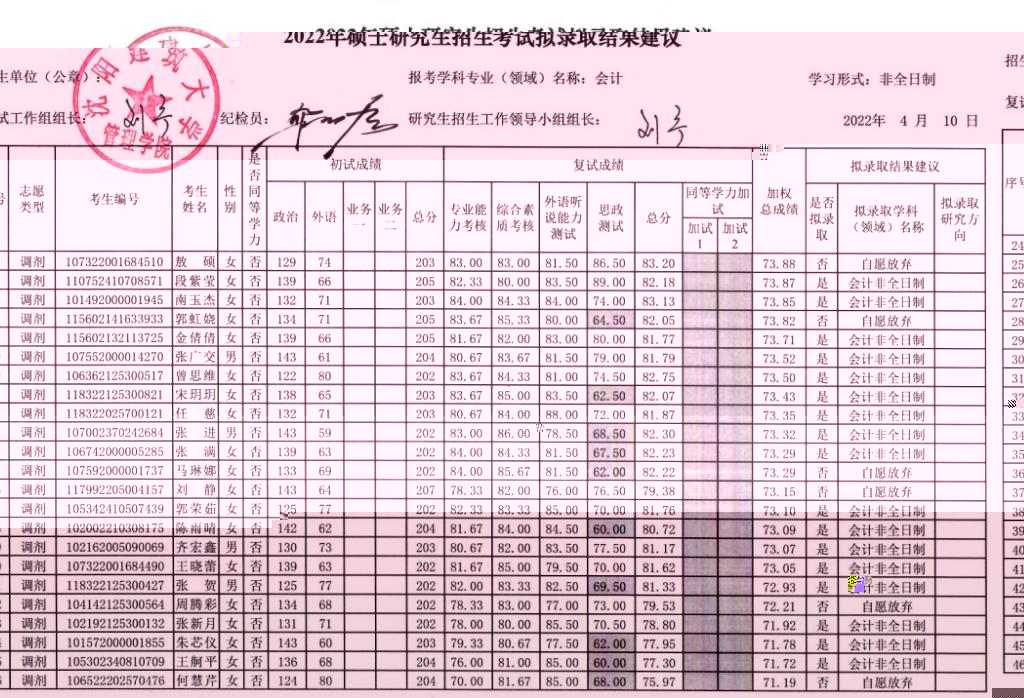 2022年硕士研究生招生考试拟录取结果建议
生单位（公章）： 报考学科专业（领域）名称：会计 学习形式：非全日制 招生
沈阳建筑大学
管理学院
试工作组组长： 刘宁 纪检员： 研究生招生工作领导小组组长： 刘宁 2022年 4 月 10 日 复试
号 志愿类型 考生编号 考生姓名 性别 是否同等学力 初试成绩 复试成绩 加权总成绩 拟录取结果建议 序号
政治 外语 业务一 业务二 总分 专业能力考核 综合素质考核 外语听说能力测试 思政测试 总分 同等学力加试 加试1 加试2 是否拟录取 拟录取学科（领域）名称 拟录取研究方向
调剂 107322001684510 敖硕 女 否 129 74 203 83.00 83.00 81.50 86.50 83.20 73.88 否 自愿放弃
调剂 110752410708571 段紫莹 女 否 139 66 205 82.33 80.00 83.50 89.00 82.18 73.87 是 会计非全日制
调剂 101492000001945 南玉杰 女 否 132 71 203 84.00 84.33 84.00 74.00 83.13 73.85 是 会计非全日制
调剂 115602141633933 郭虹娆 女 否 134 71 205 83.67 85.33 80.00 64.50 82.05 73.82 否 自愿放弃
调剂 115602132113725 金倩倩 女 否 139 66 205 81.67 82.00 83.00 80.00 81.77 73.71 是 会计非全日制
调剂 107552000014270 张广交 男 否 143 61 204 80.67 83.67 81.50 79.00 81.79 73.52 是 会计非全日制
调剂 106362125300517 曾思维 女 否 122 80 202 83.67 84.33 81.00 74.50 82.75 73.50 是 会计非全日制
调剂 118322125300821 宋玥玥 女 否 138 65 203 83.67 85.00 83.50 62.50 82.07 73.43 是 会计非全日制
调剂 118322025700121 任慈 女 否 132 71 203 80.67 84.00 88.00 72.00 81.87 73.35 是 会计非全日制
调剂 107002370242684 张进 男 否 143 59 202 83.00 86.00 78.50 68.50 82.30 73.32 是 会计非全日制
调剂 106742000005285 张满 女 否 139 63 202 84.00 84.33 81.50 67.50 82.23 73.29 是 会计非全日制
调剂 107592000001737 马琳娜 女 否 133 69 202 84.00 85.67 81.50 62.00 82.22 73.29 否 自愿放弃
调剂 117992205004157 刘静 女 否 143 64 207 78.33 82.00 76.00 76.50 79.38 73.15 否 自愿放弃
调剂 105342410507439 郭荣茹 女 否 125 77 202 82.33 83.33 85.00 70.00 81.76 73.10 是 会计非全日制
调剂 102002210308175 陈雨晴 女 否 142 62 204 81.67 84.00 84.50 60.00 80.72 73.09 是 会计非全日制
调剂 102162005090069 齐宏鑫 男 否 130 73 203 80.67 82.00 83.50 77.50 81.17 73.07 是 会计非全日制
调剂 107322001684490 王晓蕾 女 否 139 63 202 81.67 85.00 79.50 70.00 81.62 73.05 是 会计非全日制
调剂 118322125300427 张贺 男 否 125 77 202 82.00 83.33 82.50 69.50 81.33 72.93 是 会计非全日制
调剂 104142125300564 周腾彩 女 否 134 68 202 78.33 83.00 77.00 73.00 79.53 72.21 否 自愿放弃
调剂 102192125300132 张新月 女 否 131 71 202 78.00 80.00 85.50 70.50 78.80 71.92 是 会计非全日制
调剂 101572000001855 朱芯仪 女 否 143 60 203 79.33 80.67 77.50 62.00 77.95 71.78 是 会计非全日制
调剂 105302340810709 王舸平 女 否 136 68 204 76.00 81.00 85.00 60.00 77.30 71.72 是 会计非全日制
调剂 106522202570476 何慧芹 女 否 124 80 204 70.00 81.67 85.00 68.00 75.97 71.19 否 自愿放弃